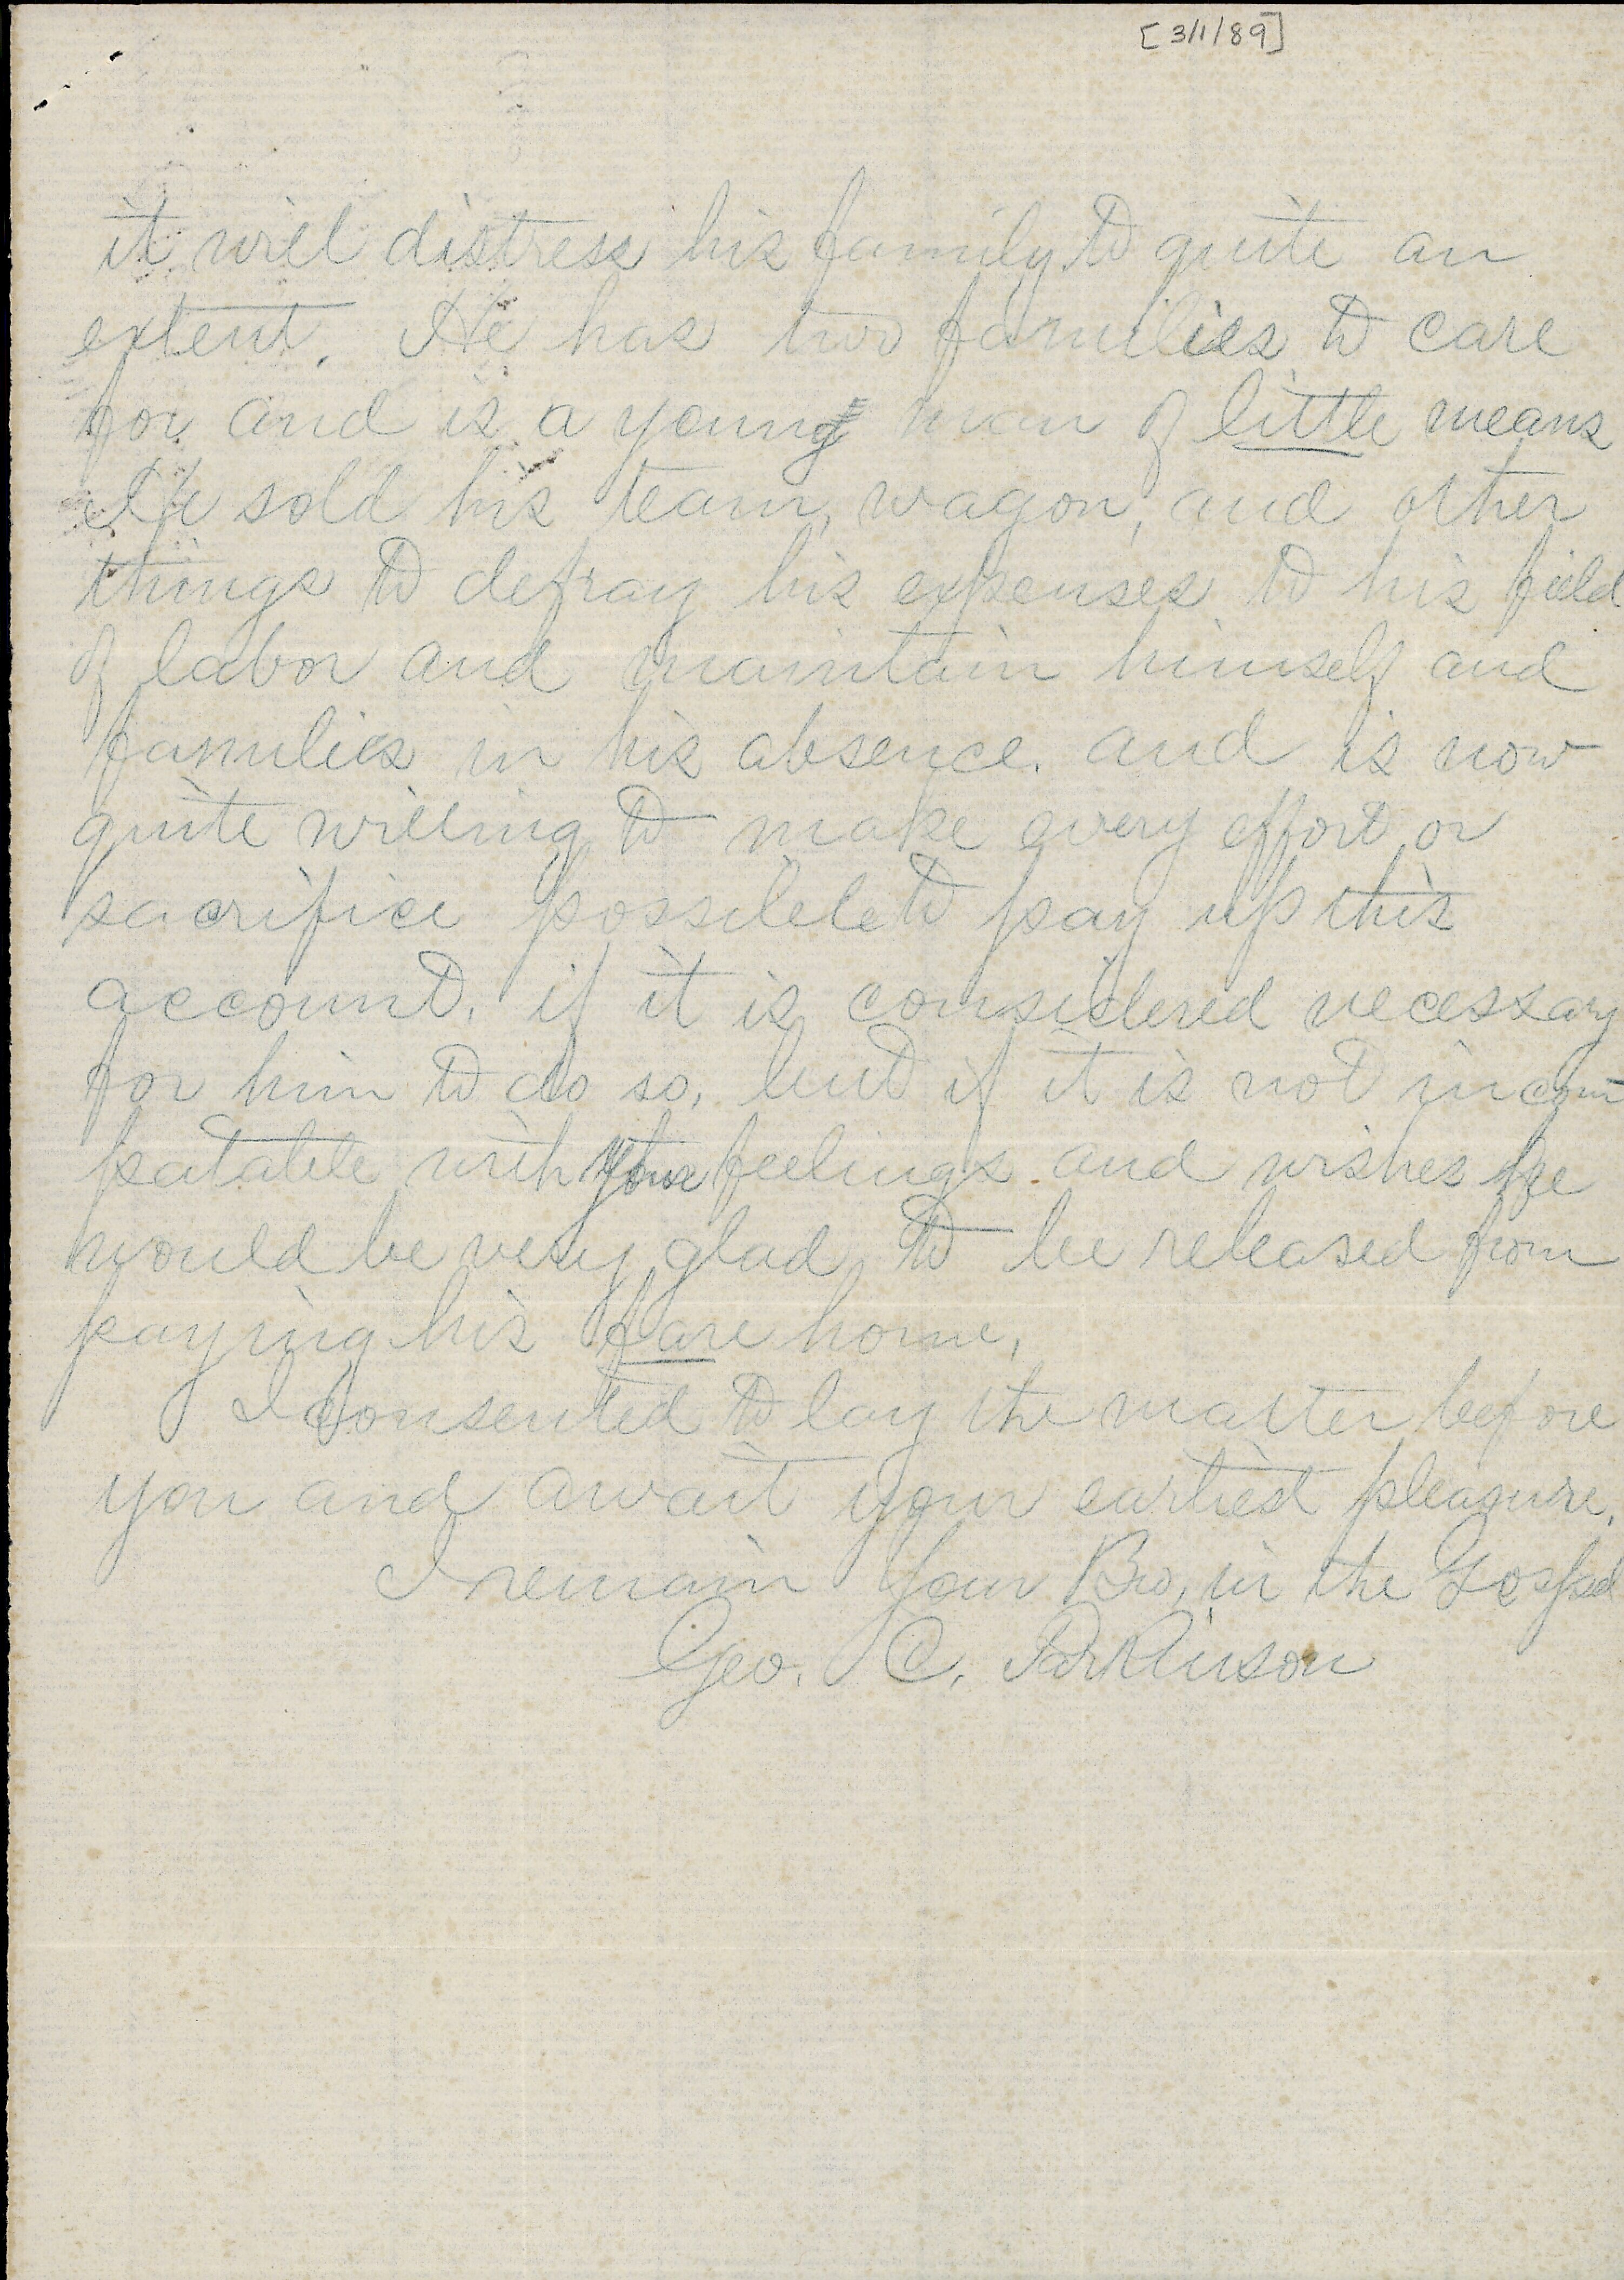 [3/1/89]
it will distress his family to quite an
extent. He has two families to care
for and is a young man of little means
He sold his team, wagon, and other
things to defray his expenses to his field
of labor and maintain himself and
families in his absence. and is now
quite willing to make every effort or
sacrifice possible to pay up this
account. if it is considered necessary
for him to do so, but if it is not incom-
patable with your feelings and wishes he
would be very glad to be released from
paying his fare home.
I consented to lay the matter before
you and await your earliest pleasure.
I remain Your Bro, in the Gospel
Geo. C. Parkinson